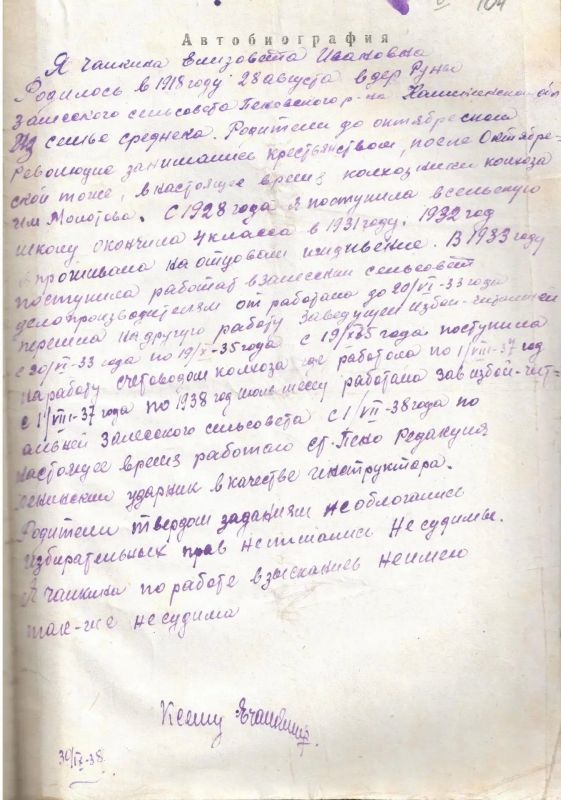 104
Автобиография
Я Чайкина Елизовета Ивановна
Родилось в 1918 году 28 августа в дер Руньи
Залесского сельсовета Пеновского р-на Калининской обл
Из семье средняка. Родители до октябреской
Революцие занимались крестьянством, после Октябре-
ской тоже, в настоящее время колхозники колхоза
им Молотова. С 1928 года я поступила в сельскую
школу окончила 4 класса в 1931 году. 1932 год
я проживала на отцовом иждивение. В 1933 году
поступила работат в залесский сельсовет
делопроизводителям от работала до 20/VI-33 года
перешла на другую работу Заведущей избой-читальней
с 20/VI-33 года по 19/X-35 года с 19/X-35 года поступила
на работу счетоводом колхоза где работала по 1/VIII-37 год
с 1/VIII-37 года по 1938 год июнь месяц работала зав избой-чит-
альней Залесского сельсовета с 1/VII-38 года по
настоящее время работаю ст. Пено Редакция
ленинский ударник в качестве инструктора.
Родители твердом заданиям не облогались
избирательных прав не лишались Не судимы.
Я Чайкина по работе взысканией не имею
так-же не судима
К сему ЯЧайкина
30/IX-38